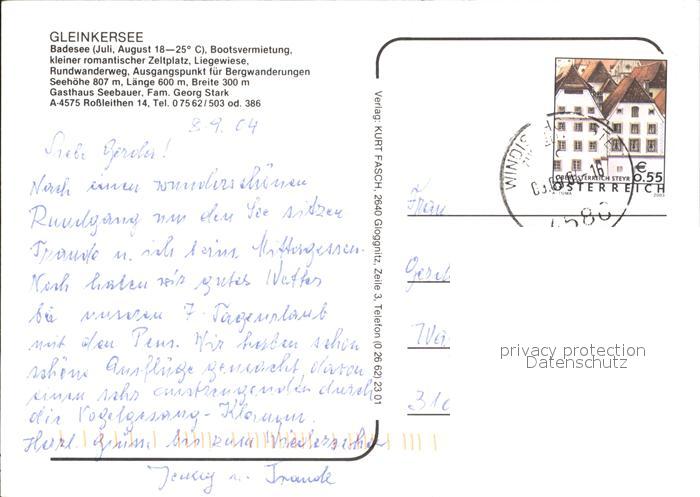 GLEINKERSEE
Badesee (Juli, August 18—25° C), Bootsvermietung,
kleiner romantischer Zeltplatz, Liegewiese,
Rundwanderweg, Ausgangspunkt für Bergwanderungen
Seehöhe 807 m, Länge 600 m, Breite 300 m
Gasthaus Seebauer, Fam. Georg Stark
A-4575 Roßleithen 14, Tel. 0 75 62 / 503 od. 386
Verlag: KURT FASCH, 2640 Gloggnitz, Zeile 3, Telefon (0 26 62) 23 01
WINDIS
4580
€
0.55
ÖSTERREICH
3.9.04
Liebe Gerda!
Nach einem wunderschönen
Rundgang um den See sitzen
Traude u. ich beim Mittagessen.
Noch haben wir gutes Wetter
bei unserem 7-Tageurlaub
mit den Pens. Wir haben schon
schöne Ausflüge gemacht, davon
einen sehr anstrengenden durch
die Vogelgesang-Klamm.
Herzl. Grüße bis zum Wiedersehen
u. Traude
Frau
Gerd
310
privacy protection
Datenschutz